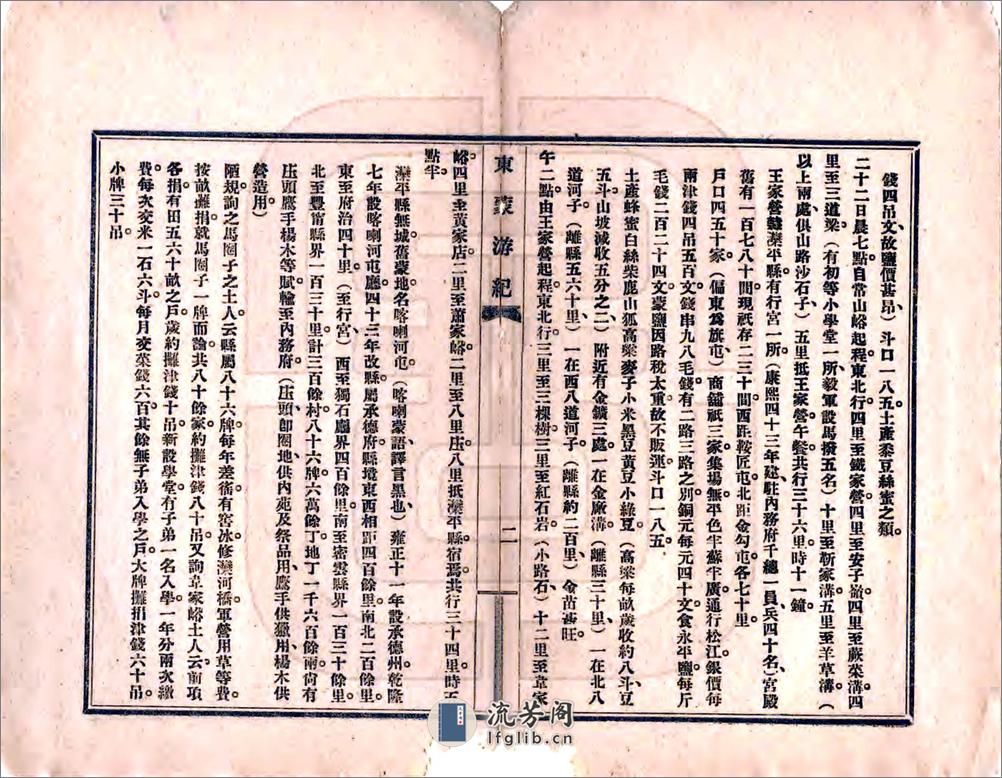 錢四吊文故鹽價甚昂）斗口一八五土產黍豆絲蜜之類
二十二日晨七點自常山峪起程東北行四里至鐵家營四里至安子嶺四里至蕨菜溝四
里至三道梁（有初等小學堂一所毅軍設馬撥五名）十里至靳家溝五里至羊草溝（
以上兩處俱山路沙石子）五里抵王家營午餐共行三十六里時十一鐘
王家營隸灤平縣有行宮一所（康熙四十三年建駐內務府千總一員兵四十名）宮殿
舊有一百七八十間現祇存二三十間西距鞍匠屯北距金勾屯各七十里
戶口四五十家（偏東爲旗屯）商鋪祇三家集場無平色半蘇半廣通行松江銀價每
兩津錢四吊五百文錢串九八毛錢有二路三路之別銅元每元四十文食永平鹽每斤
毛錢二百二十四文蒙鹽因路稅太重故不販運斗口一八五
土產蜂蜜白絲柴鹿山狐高粱麥子小米黑豆黃豆小綠豆（高粱每畝歲收約八斗豆
五斗山坡減收五分之二）附近有金鑛三處一在金廠溝（離縣三十里）一在北八
道河子（離縣五六十里）一在西八道河子（離縣約二百里）金苗甚旺
午二點由王家營起程東北行三里至三棵樹三里至紅石岩（小路石）十二里至韋家
東蒙游紀
二
峪四里至黃家店二里至蕭家峪二里至八里庄八里抵灤平縣宿焉共行三十四里時五
點半
灤平縣無城舊蒙地名喀喇河屯（喀喇蒙語譯言黑也）雍正十一年設承德州乾隆
七年設喀喇河屯廳四十三年改縣屬承德府縣境東西相距四百餘里南北二百餘里
東至府治四十里（至行宮）西至獨石廳界四百餘里南至密雲縣界一百三十餘里
北至豐甯縣界一百三十里計三百餘村八十六牌六萬餘丁地丁一千六百餘兩尙有
庄頭鷹手楊木等賦輸至內務府（庄頭卽圈地供內苑及祭品用鷹手供獵用楊木供
營造用）
陋規詢之馬圈子之土人云縣屬八十六牌每年差徭有窖冰修灤河橋軍營用草等費
按畝攤捐就馬圈子一牌而論共八十餘家約攤津錢八十吊又詢韋家峪土人云前項
各捐有田五六十畝之戶歲約攤津錢十吊新設學堂有子弟一名入學一年分兩次繳
費每次交米一石六斗每月交菜錢六百其餘無子弟入學之戶大牌攤捐津錢六十吊
小牌三十吊
流芳閣
lfglib.cn